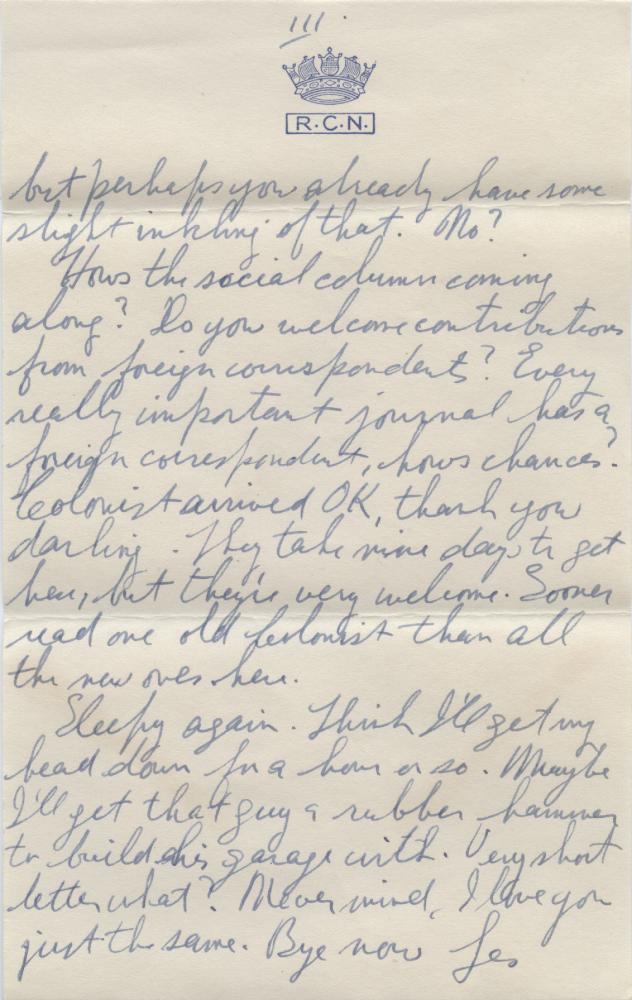 III.
R.C.N.
but perhaps you already have some
slight inkling of that. No?
Hows the social column coming
along? Do you welcome contributions
from foreign correspondents? Every
really important journal has a
foreign correspondent, hows chances?
Colonist arrived OK, thank you
darling. They take nine days to get
here, but they're very welcome. Sooner
read one old Colonist than all
the new ones here.
Sleepy again. Think I'll get my
head down for a hour or so. Maybe
I'll get that guy a rubber hammer
to build his garage with. Very short
letter what? Never mind, I love you
just the same. Bye now Les